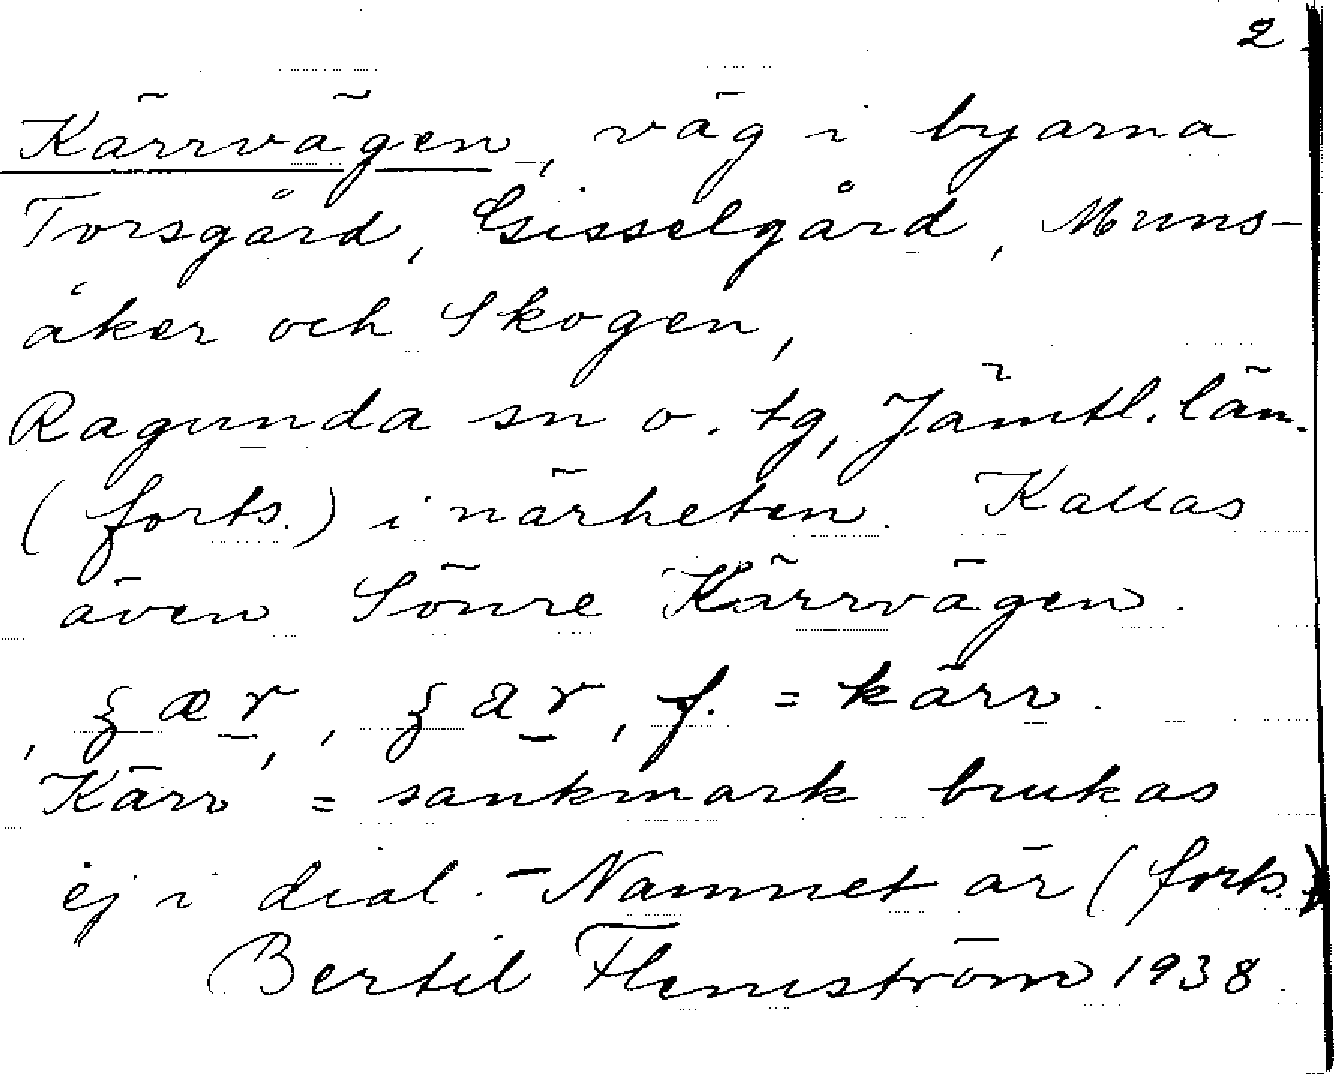 2
Kärrvägen, väg i byarna
Torsgård, Gisselgård, Muns-
åker och Skogen,
Ragunda sn o. tg, Jämtl. län.
(forts.) i närheten. Kallas
även Sönre Kärrvägen.
f. = kärr.
Kärr = sankmark brukas
ej i dial. - Namnet är (forts.)
Bertil Flemström 1938